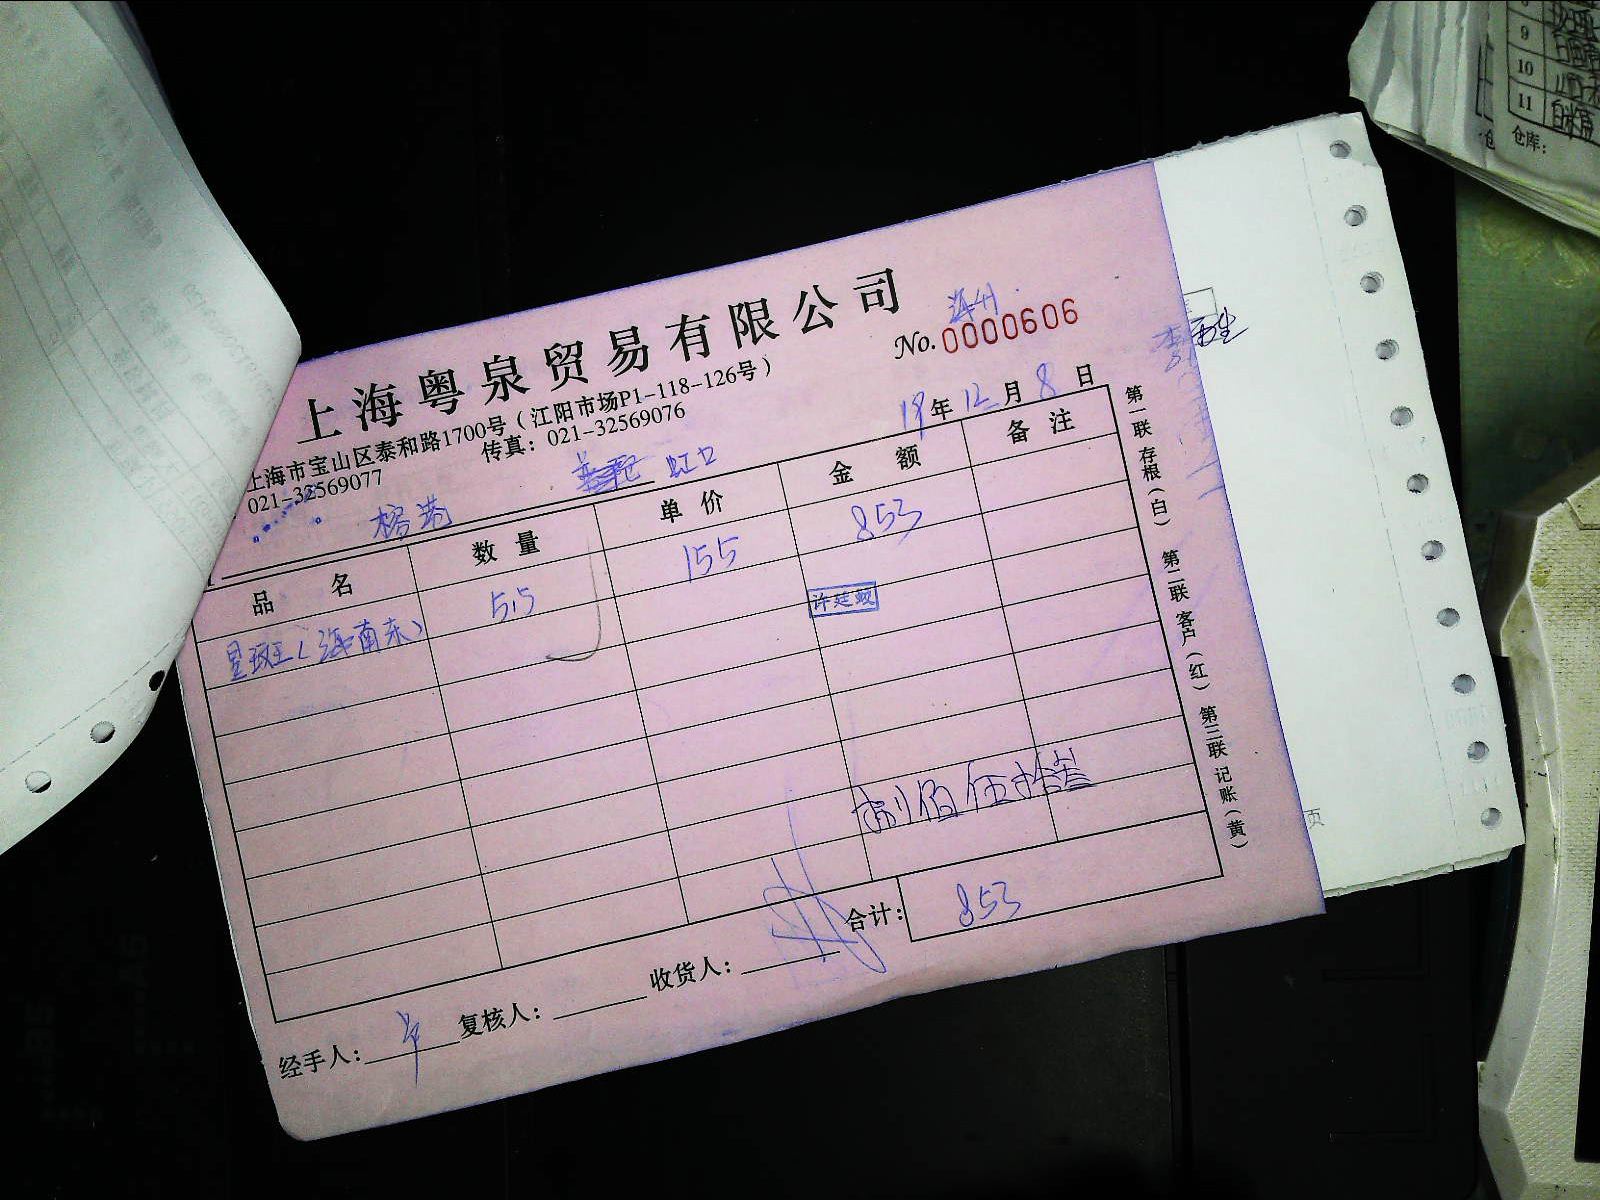 上海粤泉贸易有限公司
No. 0000606
上海市宝山区泰和路1700号（江阳市场P1-118-126号）
021-32569077 传真：021-32569076
榕港 虹口
19年12月8日
品名 数量 单价 金额 备注
星斑（海南东） 5.5 155 853
许廷蛟
捌佰伍拾叁
合计： 853
经手人： 复核人： 收货人：
第一联 存根（白） 第二联 客户（红） 第三联 记账（黄）
9
10
11
仓库：
页